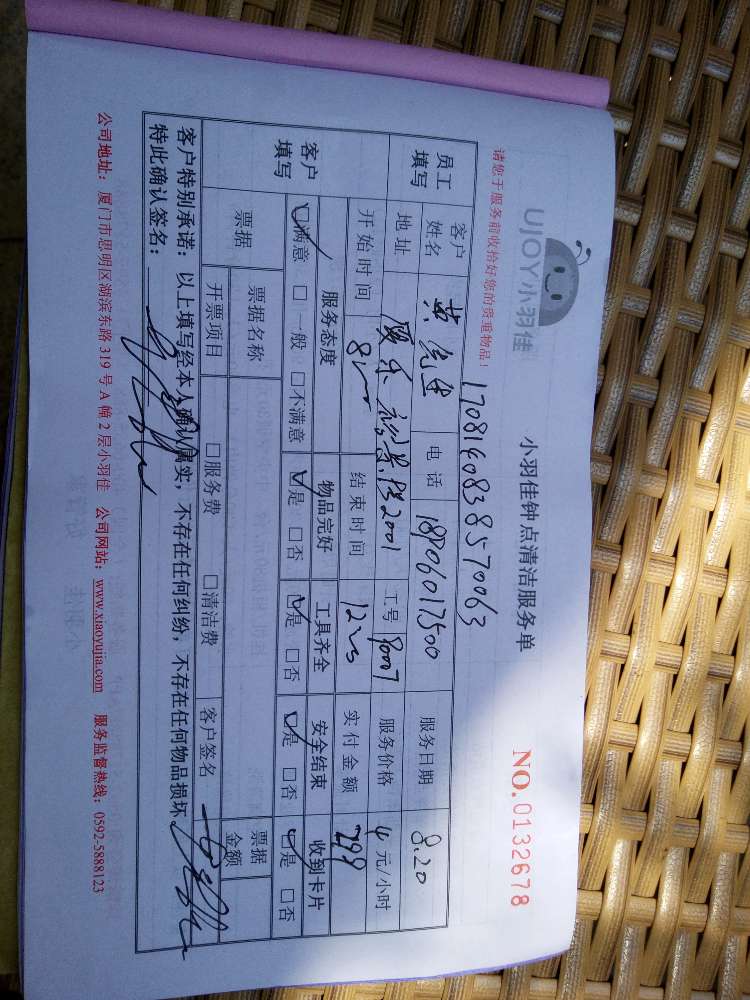 UJOY小羽佳
小羽佳钟点清洁服务单
NO.0132678
请您于服务前收拾好您的贵重物品！
1708160838570063
员工填写 客户姓名 电话 18906017500 服务日期 8.20
地址 2001 工号 9007 服务价格 4 元/小时
开始时间 8 结束时间 12 实付金额 799
客户填写 服务态度 物品完好 工具齐全 安全结束 收到卡片
□满意 □一般 □不满意 □是 □否 □是 □否 □是 □否 □是 □否
票据 票据名称 票据金额
开票项目 □服务费 □清洁费 客户签名
客户特别承诺：以上填写经本人确认属实，不存在任何纠纷，不存在任何物品损坏
特此确认签名：
公司地址：厦门市思明区湖滨东路 319 号 A 幢 2 层小羽佳 公司网站：www.xiaoyujia.com 服务监督热线：0592-5888123